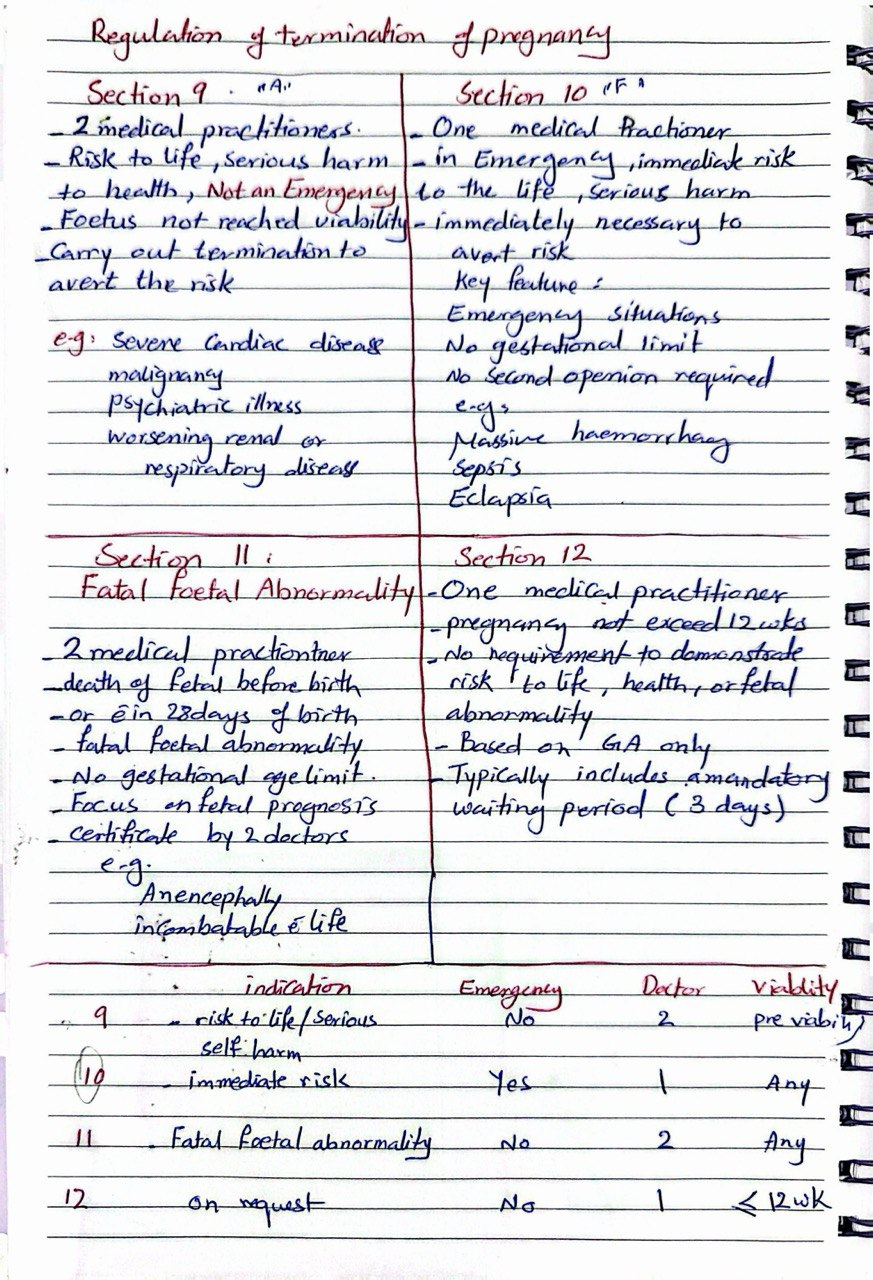 Regulation of termination of pregnancy
Section 9 . "A"
- 2 medical practitioners.
- Risk to life, serious harm
to health, Not an Emergency
- Foetus not reached viability
- Carry out termination to
avert the risk
e.g: severe Cardiac disease
malignancy
psychiatric illness
worsening renal or
respiratory disease
Section 10 "F"
- One medical Practioner
- in Emergency, immediate risk
to the life, serious harm
- immediately necessary to
avert risk
Key feature :
Emergency situations
No gestational limit
No second openion required
e.gs
Massive haemorrhag
Sepsis
Eclapsia
Section 11 :
Fatal Foetal Abnormality
- 2 medical practiontner
- death of fetal before birth
- or c̄ in 28days of birth
- fatal foetal abnormality
- No gestational age limit.
- Focus on fetal prognosis
- certificate by 2 doctors
e-g.
Anencephally
incombatable c̄ life
Section 12
- One medical practitioner
- pregnancy not exceed 12 wks
- No requirement to demonstrate
risk to life, health, or fetal
abnormality
- Based on GA only
- Typically includes a mandatory
waiting period (3 days)
indication Emergency Doctor Viablity
9 - risk to life/serious No 2 pre viability
self harm
10 - immediate risk Yes 1 Any
11 - Fatal Foetal abnormality No 2 Any
12 on request No 1 ≤ 12 wk